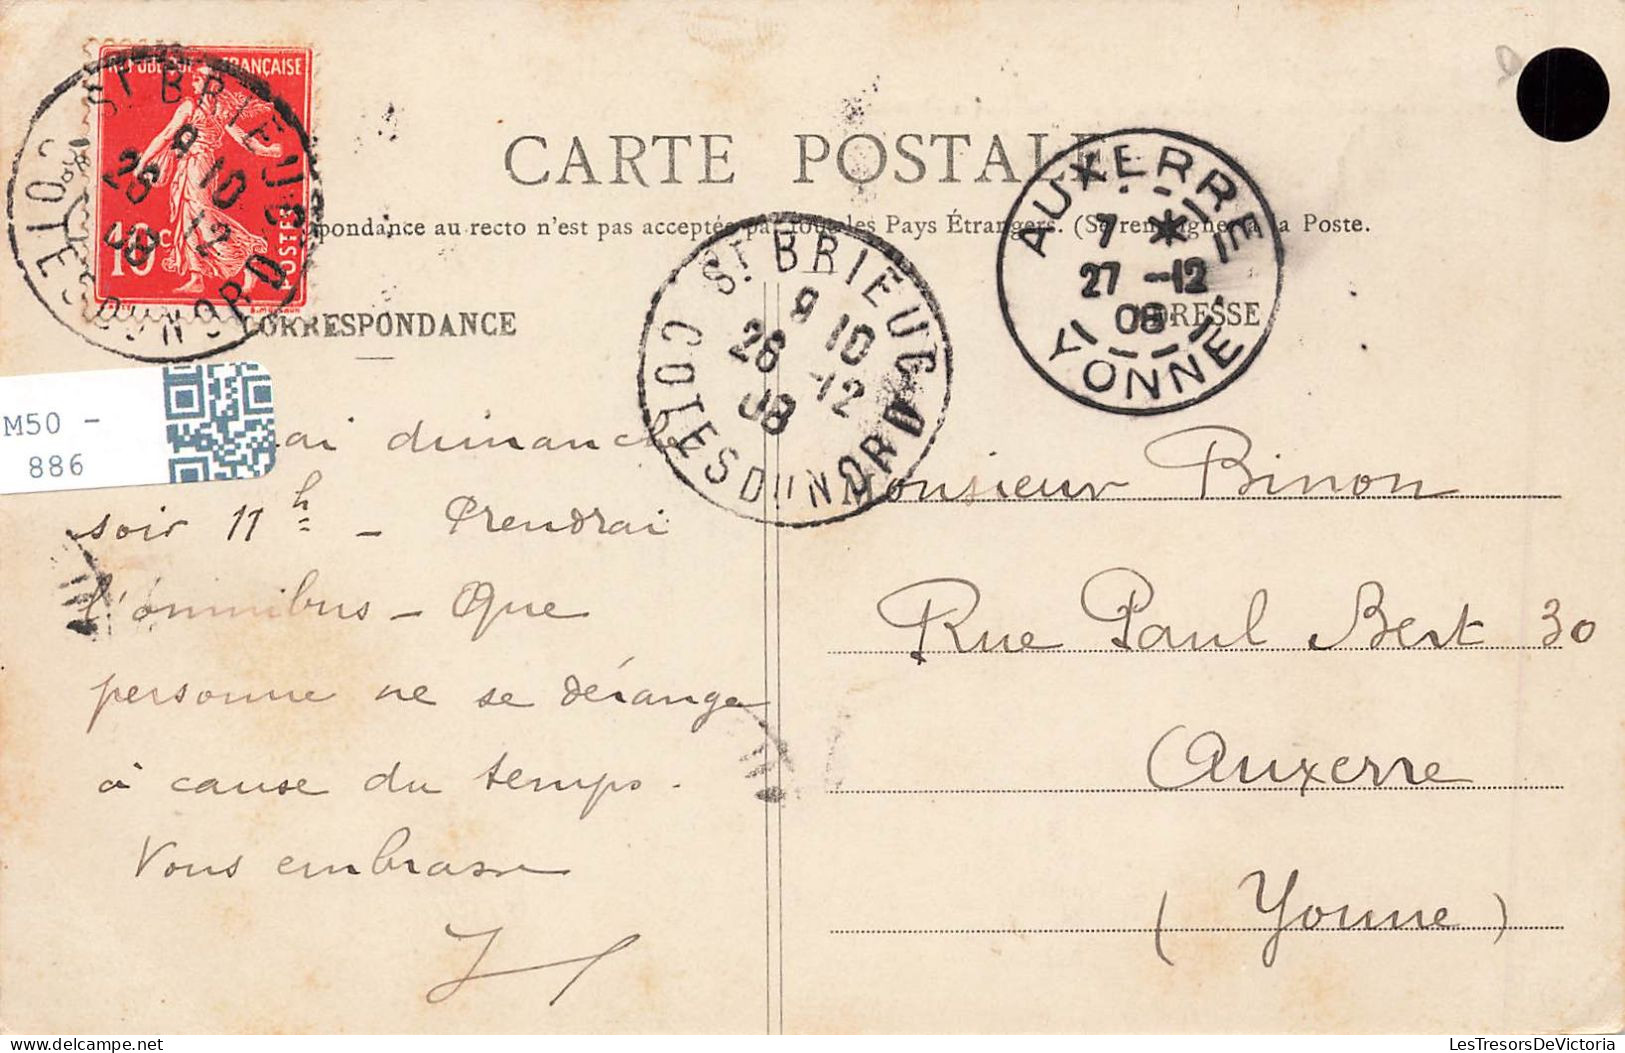 RÉPUBLIQUE FRANÇAISE
10c
POSTES
ST BRIEUC
9 10
26 12
08
COTES DU NORD
CARTE POSTALE
pondance au recto n'est pas acceptée par tous les Pays Étrangers. (Se renseigner à la Poste.
ST BRIEUC
9 10
26 -12
08
COTES DU NORD
AUXERRE
7 *
27 -12
08
YONNE
CORRESPONDANCE
ADRESSE
M50 -
886
ai dimanche
soir 11h - Prendrai
l'omnibus - Que
personne ne se dérange
à cause du temps.
Vous embrasse
Monsieur Binon
Rue Paul Bert 30
Auxerre
(Yonne)
LesTresorsDeVictoria